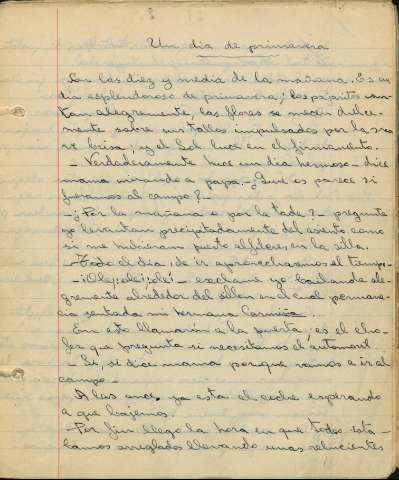 2
Un dia de primavera
Son las diez y media de la mañana. Es un
dia esplendoroso de primavera; los pajaritos can-
tan alegremente, las flores se mecen dulce-
mente sobre sus tallos impulsados por la sua-
ve brisa; y el Sol luce en el firmamento.
- Verdaderamente hace un dia hermoso - dice
mama mirando a papa. - ¿Que os parece si
fueramos al campo? -
- ¿Por la mañana o por la tarde? - pregunte
yo levantam precipitadamente del asiento como
si me hubieran puesto alfileres en la silla.
- Todo el dia, de ir aprovecharemos el tiempo -
- ¡Ole; ole; ole! - exclame yo bailando ale-
gremente alrededor del sillon en el cual permane-
cia sentada mi hermana Carmina.
En esto llamaron a la puerta; es el cho-
fer que pregunta si necesitamos el automovil
- Si, si dice mama porque vamos a ir al
campo -
A las once, ya esta el coche esperando
a que bajemos.
Por fin llego la hora en que todos esta-
bamos arreglados llevando unas relucientes